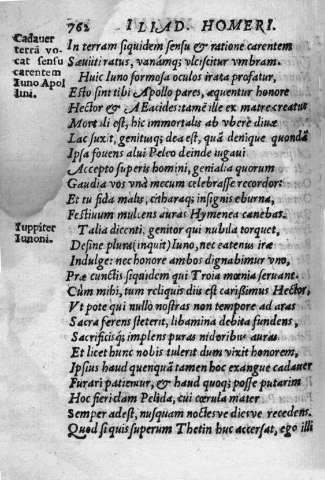 762 ILIAD. HOMERI.
Cadauer
terrā vo
cat sensu
carentem
Iuno Apol
lini.
In terram siquidem sensu & ratione carentem
Sæuiit iratus, vanámq; vlciscitur vmbram.
Huic Iuno formosa oculos irata profatur,
Esto sint tibi Apollo pares, æquentur honore
Hector & AEacides: tamē ille ex matre creatus
Mortali est, hic immortalis ab vbere diuæ
Lac suxit, genitusq; dea est, quā denique quondā
Ipsa fouens alui Peleo deinde iugaui
Accepto superis homini, genialia quorum
Gaudia vos vnà mecum celebrasse recordor:
Et tu fida malis, citharaq; insignis eburna,
Festiuum mulcens auras Hymenea canebas.
Iuppiter
Iunoni.
Talia dicenti, genitor qui nubila torquet,
Desine plura (inquit) Iuno, nec eatenus iræ
Indulge: nec honore ambos dignabimur vno,
Præ cunctis siquidem qui Troia mœnia seruant.
Cùm mihi, tum reliquis diis est carissimus Hector,
Vt pote qui nullo nostras non tempore ad aras
Sacra ferens steterit, libamina debita fundens,
Sacrificisq; implens puras nidoribus auras.
Et licet hunc nobis tulerit dum vixit honorem,
Ipsius haud quenquā tamen hoc exangue cadauer
Furari patiemur, & haud quoq; posse putarim
Hoc fieri clam Pelida, cui cœrula mater
Semper adest, nusquam noctésve diésve recedens.
Quòd si quis superum Thetin huc accersat, ego illi